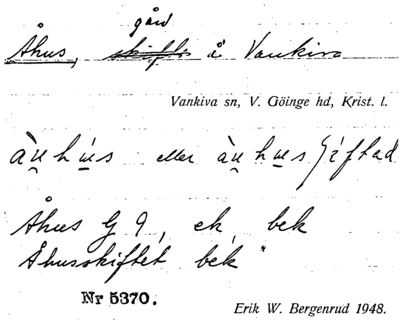 gård
Åhus, skifte å Vankiva
Vankiva sn, V. Göinge hd, Krist. l.
àu̯hu̠s eller àu̯hu̠s
Åhus G 9, ek, bek
Åhusskiftet bek "
Nr 5370.
Erik W. Bergenrud 1948.